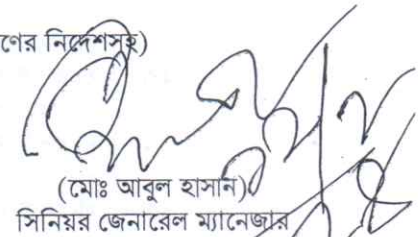 ণের নির্দেশসহ)
(মোঃ আবুল হাসান)
সিনিয়র জেনারেল ম্যানেজার